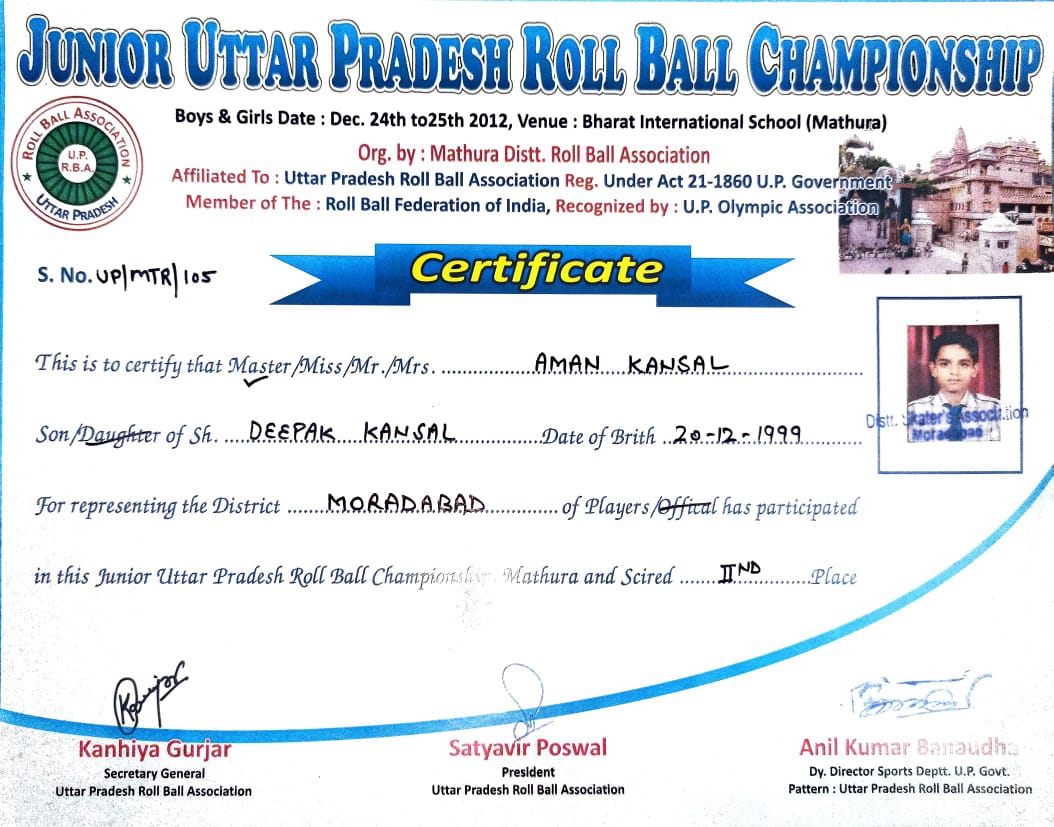 JUNIOR UTTAR PRADESH ROLL BALL CHAMPIONSHIP
Boys & Girls Date : Dec. 24th to25th 2012, Venue : Bharat International School (Mathura)
Org. by : Mathura Distt. Roll Ball Association
Affiliated To : Uttar Pradesh Roll Ball Association Reg. Under Act 21-1860 U.P. Government
Member of The : Roll Ball Federation of India, Recognized by : U.P. Olympic Association
ROLL BALL ASSOCIATION
U.P.
R.B.A.
UTTAR PRADESH
S. No. UP/MTR/105
Certificate
This is to certify that Master/Miss/Mr./Mrs. .................AMAN KANSAL.................
Son/Daughter of Sh. .....DEEPAK KANSAL................Date of Brith ..20-12-1999............
Distt. Skater's Association
Moradabad
For representing the District .......MORADABAD............. of Players/Offical has participated
in this Junior Uttar Pradesh Roll Ball Championship, Mathura and Scired .......IIND...........Place
Kanhiya Gurjar
Secretary General
Uttar Pradesh Roll Ball Association
Satyavir Poswal
President
Uttar Pradesh Roll Ball Association
Anil Kumar Banaudha
Dy. Director Sports Deptt. U.P. Govt.
Pattern : Uttar Pradesh Roll Ball Association